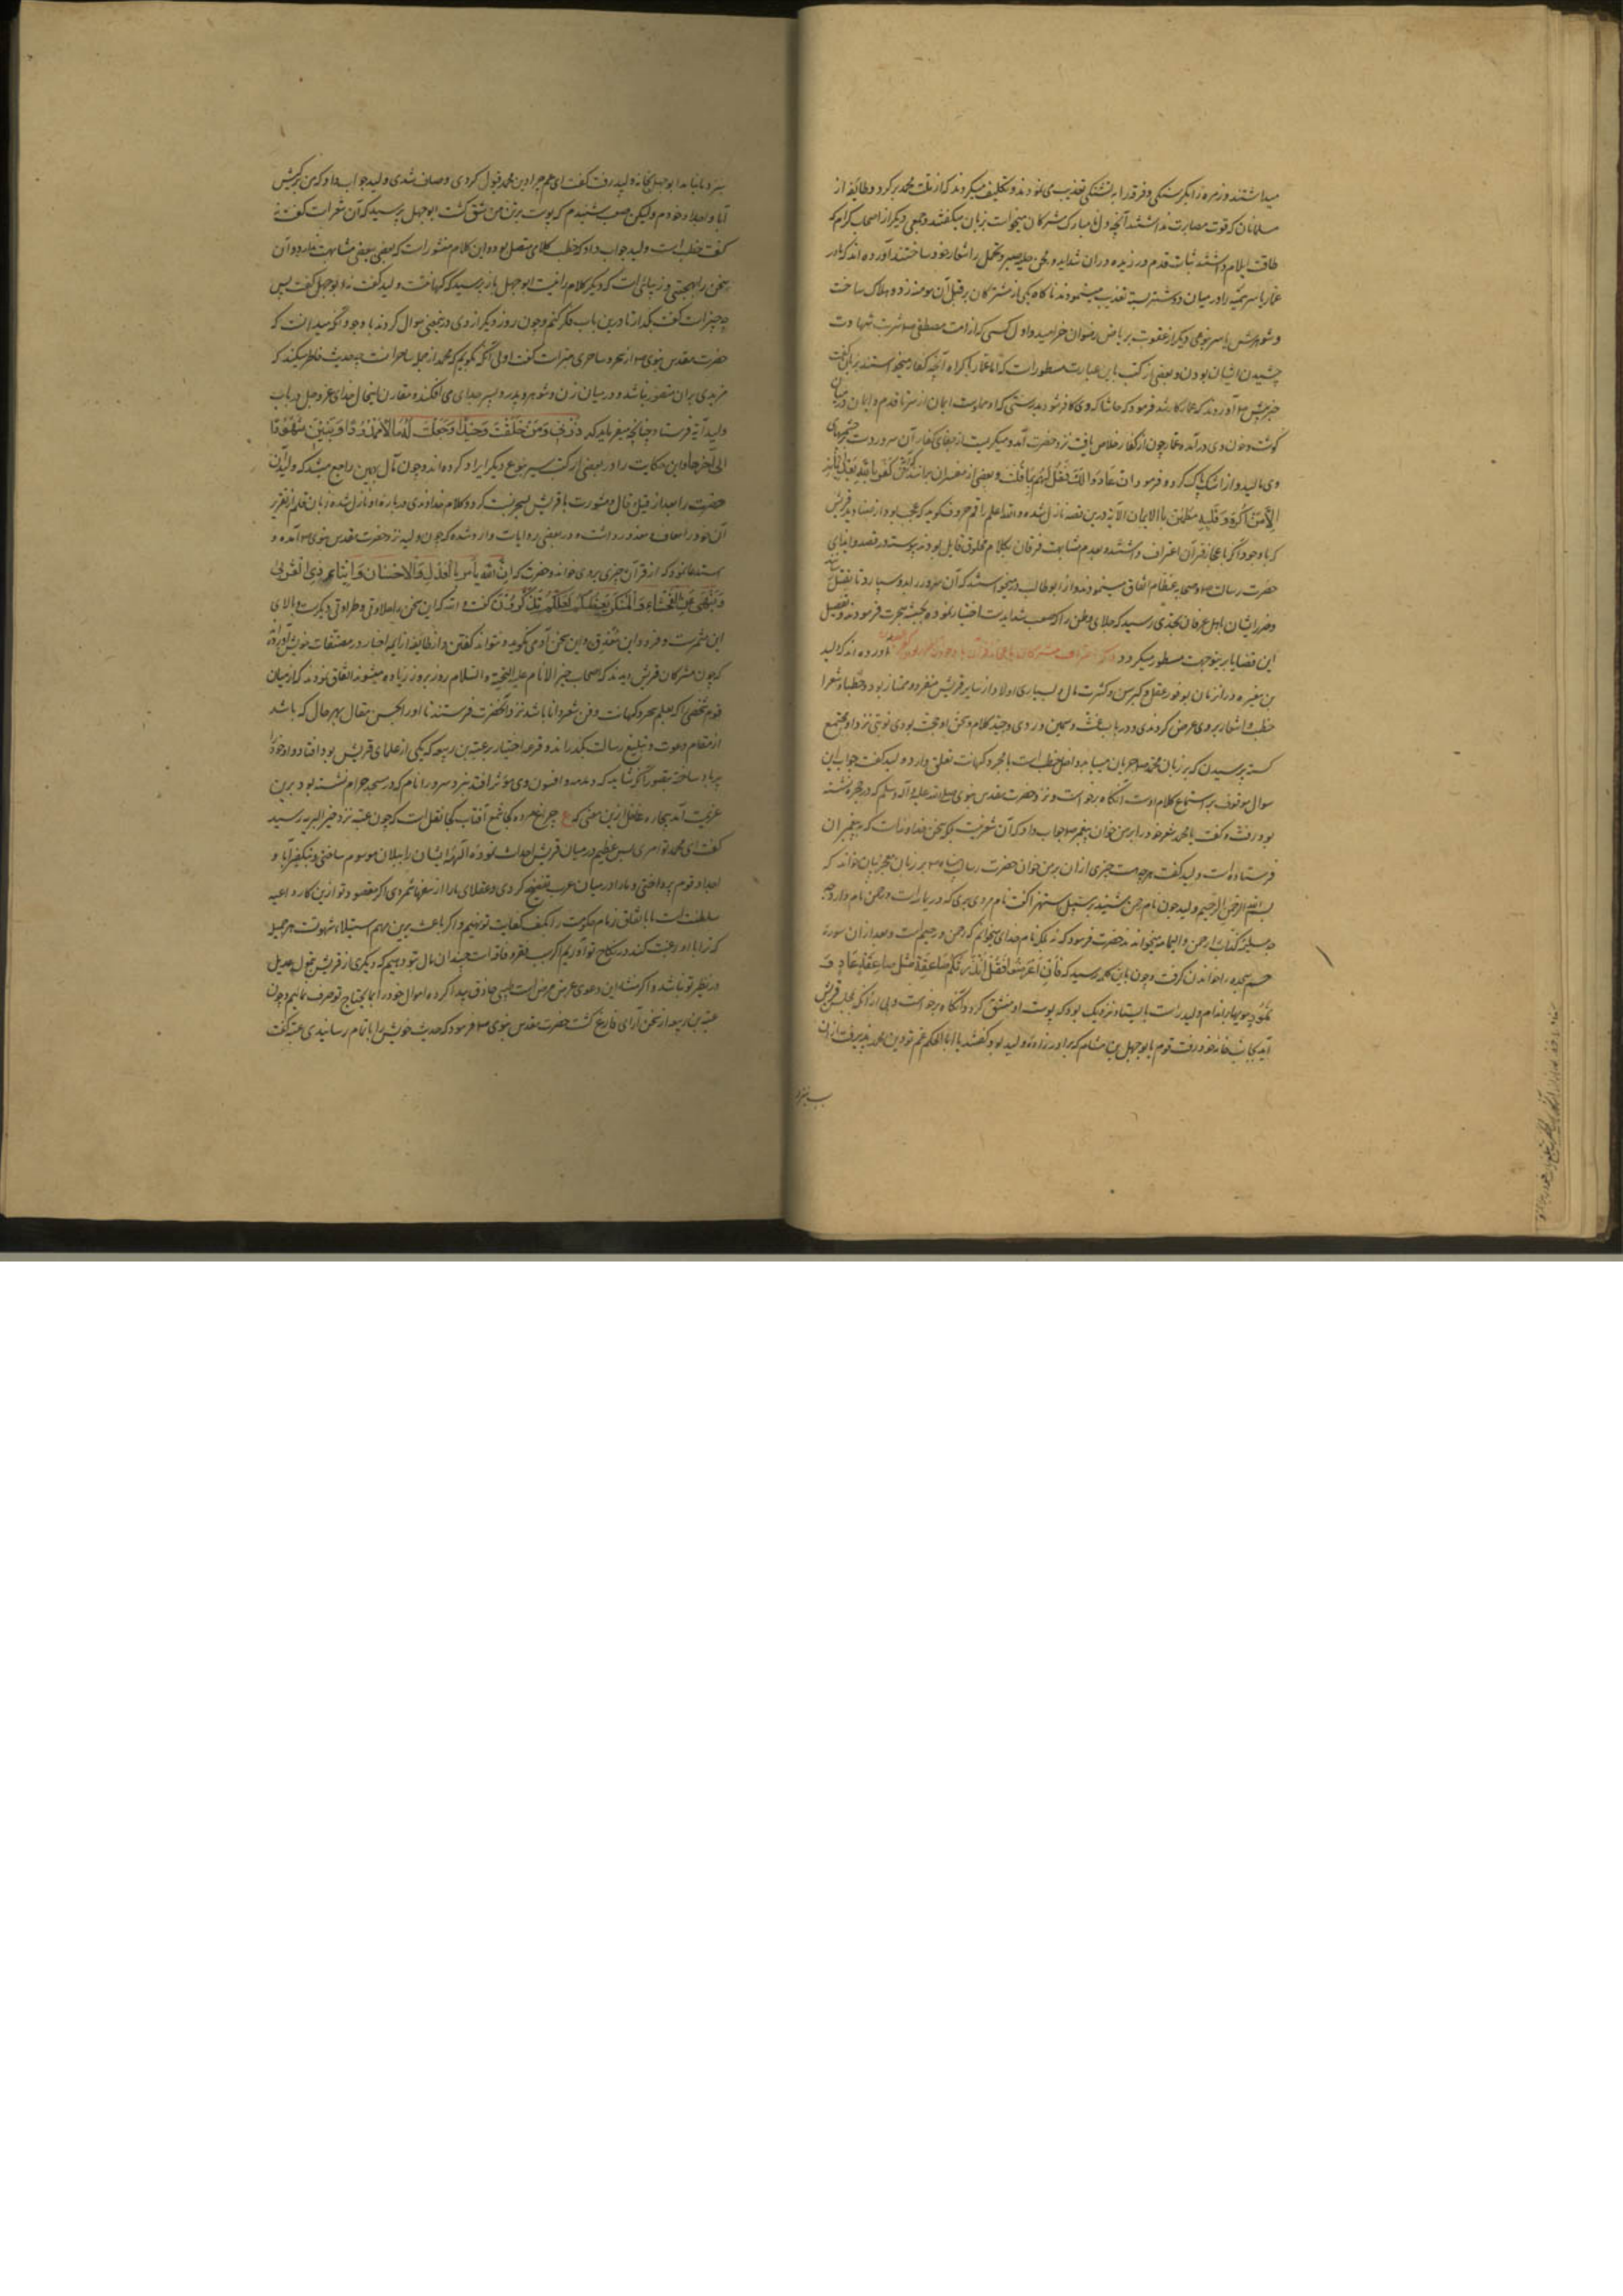 میداشتند و زمره را بکرسنکی و فرقه را به تشنکی تعذیب می نمودند و تکلیف میکردند که از ملت محمد برکرد و طائفه از
مسلمانان که قوت مصابرت نداشتند آنچه دل مبارک مشرکان میخواست بزبان میکفتند و جمعی دیکر از اصحاب کرام که
طاقت ایلام داشتند ثبات قدم ورزیده در آن شداید و محن صبر و تحمل را شعار خود ساختند آورده اند که مادر
عمار یاسر سمیه را در میان دو شتر بسته تعذیب مینمودند ناکاه یکی از مشرکان بر قبل آن مومنه زد و هلاک ساخت
و شوهرش یاسر نوعی دیکر از عقوبت بریاض رضوان خرامید و اول کسی که از امت مصطفی شربت شهادت
چشیدن ایشان بودن و بعضی از کتب باین عبارت مسطور است که اما عمار باکراه آنچه کفار میخواستند بر زبان کفت
خبر پیش آوردند که عمار کافر شد فرمود که حاشا که وی کافر شود بدرستی که او مملوست ایمان از سر تا قدم و ایمان در میان
کوشت و خون وی درآمده عمار چون از کفار خلاص یافت نزد حضرت آمد و میکریست از جفای کفار آن سرور دست بر چشم
وی مالید و از اشک پاک کرده فرمود ان عادوا لک فقل لهم بما قلت و بعضی از مفسران برانند که من کفر بالله من بعد ایمانه
الا من اکره و قلبه مطمئن بالایمان الایه درین قصه نازل شده والله اعلم راقم حروف کوید که عجب بود از صنادید قریش
که با وجود آنکه باعجاز قرآن اعتراف داشتند و بعدم مشابهت فرقان بکلام مخلوق قایل بودند پیوسته در قصد و ایذای
حضرت رسالت و صحابه عظام اتفاق مینمودند و از ابوطالب درمیخواستند که آن سرور را بدو سپارد تا بقتل
و ضرر ایشان باهل عرفان بحدی رسید که جلای وطن را که صعب شدایدست اختیار نموده بحبشه هجرت فرمودند و تفصیل
این قضایا برینوجهت مسطور میکردد ذکر اعتراف مشرکان باعجاز قرآن با وجود آورده اند که ولید
بن مغیره در آنزمان بوفور عقل و کبر سن و کثرت مال و بسیاری اولاد از سایر قریش منفرد و ممتاز بود و خطبا و شعرا
خطب و اشعار بر وی عرض کردندی و در باب غث و سمین و ردی و جید کلام و سخن او حجت بودی نوبتی نزد او مجتمع
کشته پرسیدن که بر زبان محمد جریان مییابد داخل خطب است یا بسحر و کهانت تعلق دارد ولید کفت جواب این
سوال موقوف بر استماع کلام اوست آنکاه برخواست و نزد حضرت مقدس نبوی صلی الله علیه و آله و سلم که در حجره نشسته
بود رفت و کفت یا محمد شعر خود را بر من خوان پیغمبر جواب داد که آن شعر نیست بلکه سخن خداوند است که به پیغمبران
فرستاده است ولید کفت هرچه هست چیزی از آن بر من خوان حضرت رسالت پناه بر زبان معجز بیان خواند که
بسم الله الرحمن الرحیم ولید چون نام رحمن بشنید بر سبیل استهزا کفت نام مردی میبری که در یمامه است و رحمن نام دارد
مسیلمه کذاب را رحمن الیمامه میخوانند حضرت فرمود که نه بلکه نام خدای میخوانم که رحمن و رحیم است و بعد از آن سوره
حم سجده را خواندن کرفت و چون باین کلمه رسید که فان اعرضوا فقل انذرتکم صاعقة مثل صاعقة عاد و
ثمود مویها بر اندام ولید راست بایستاد و نزدیک بود که پوست او منشق کردد آنکاه برخواست و بی از آنکه بمجلس قریش
آید بجانب خانه خود رفت قوم با ابوجهل بن هشام که برادر زاده ولید بود کفتند یا ابا الحکم عم تو دین محمد پذیرفت ازان
بنزد
بنزد ما نیامد ابوجهل بخانه ولید رفت کفت ای عم چرا دین محمد قبول کردی و صاف شدی ولید جواب داد که من بر کیش
آبا و اجداد خودم ولیکن صعب شنیدم که پوست بر تن من شق کشت ابوجهل پرسید که آن شعر است کفت نه
کفت خطب است ولید جواب داد که خطب کلامی متصل بود و این کلام منثور است که بعضی ببعضی مشابهت ندارد و آن
سخن را بهجتی و زیبائی است که دیکر کلام را نیست ابوجهل باز پرسید که کهانت است ولید کفت نه ابوجهل کفت پس
چه چیز است کفت بکذار تا درین باب فکر کنم و چون روز دیکر از وی درینمعنی سوال کردند با وجود آنکه میدانست که
حضرت مقدس نبوی از سحر و ساحری مبراست کفت اولی آنکه بکویم که محمد از جمله ساحرانست چه حدیث خاطر میکند که
مزیدی بران متصور نباشد و در میان زن و شوهر و پدر و پسر جدایی می افکند مقارن اینحال خدای عز و جل در باب
ولید آیه فرستاد چنانچه میفرماید که ذرنی و من خلقت وحیدا و جعلت له مالا ممدودا و بنین شهودا
الی آخرها و این حکایت را در بعضی از کتب سیر بنوع دیکر ایراد کرده اند و چون مآل بهمین راجع میشد که ولید آن
حضرت را بعد از قیل و قال و مشورت با قریش بسحر نسبت کرد و کلام خداوندی درباره او نازل شده زبان قلم از تقریر
آن خود را معاف و معذور داشت و در بعضی روایات وارد شده که چون ولید نزد حضرت مقدس نبوی آمده و
استدعا نمود که از قرآن چیزی بر وی خواند حضرت که ان الله یأمر بالعدل والاحسان وایتاء ذی القربی
وینهی عن الفحشاء والمنکر یعظکم لعلکم تذکرون کفت والله که این سخن را حلاوتی و طراوتی دیکرست و بالای
این مثمرست و فرود این مغدق و این سخن آدمی نکوید و نتواند کفتن و از طائفه از ایمه اخبار در مصنفات خویش آورده
که چون مشرکان قریش دیدند که اصحاب خیر الانام علیه التحیة والسلام روز بروز زیاده میشوند اتفاق نمودند که از میان
قوم شخصی را که بعلم سحر و کهانت و فن شعر دانا باشد نزد آنحضرت فرستند تا او را بحسن مقال بهر حال که باشد
از مقام دعوت و تبلیغ رسالت بکذراند و قرعه اختیار بر عتبه بن ربیعه که یکی از علمای قریش بود افتاد و او خود را
پرباد ساخته بتصور آنکه شاید که دمدمه و افسون وی موثر افتد بنزد سرور انام که در مسجد حرام نشسته بود برین
عزیمت آمد بیچاره غافل ازین معنی که ع چراغ مرده کجا شمع آفتاب کجا نقل است که چون عتبه نزد خیر البریه رسید
کفت ای محمد تو امری بس عظیم در میان قریش احداث نموده آلهه ایشان را ببطلان موسوم ساختی و بتکفیر آبا و
اجداد قوم پرداختی و ما را در میان عرب تفضیح کردی و عقلای ما را از سفها شمردی اکر مقصود تو ازین کار داعیه
سلطنت است ما باتفاق زمام حکومت را بکف کفایت تو نهیم و اکر باعث برین مهم استیلاء شهوتست هر جمیله
که ترا بدو رغبت کند در نکاح تو آوریم اکر سبب فقر و فاقه است چندان مال بتو دهیم که دیکری از قریش بتمول عدیل
و نظیر تو نباشد و اکر منشاء این دعوی عرض مرض است طبیبی حاذق پیدا کرده اموال خود را بمایحتاج تو صرف نمائیم و چون
عتبه بن ربیعه از سخن آرای فارغ کشت حضرت مقدس نبوی فرمود که حدیث خویش را باتمام رسانیدی عتبه کفت